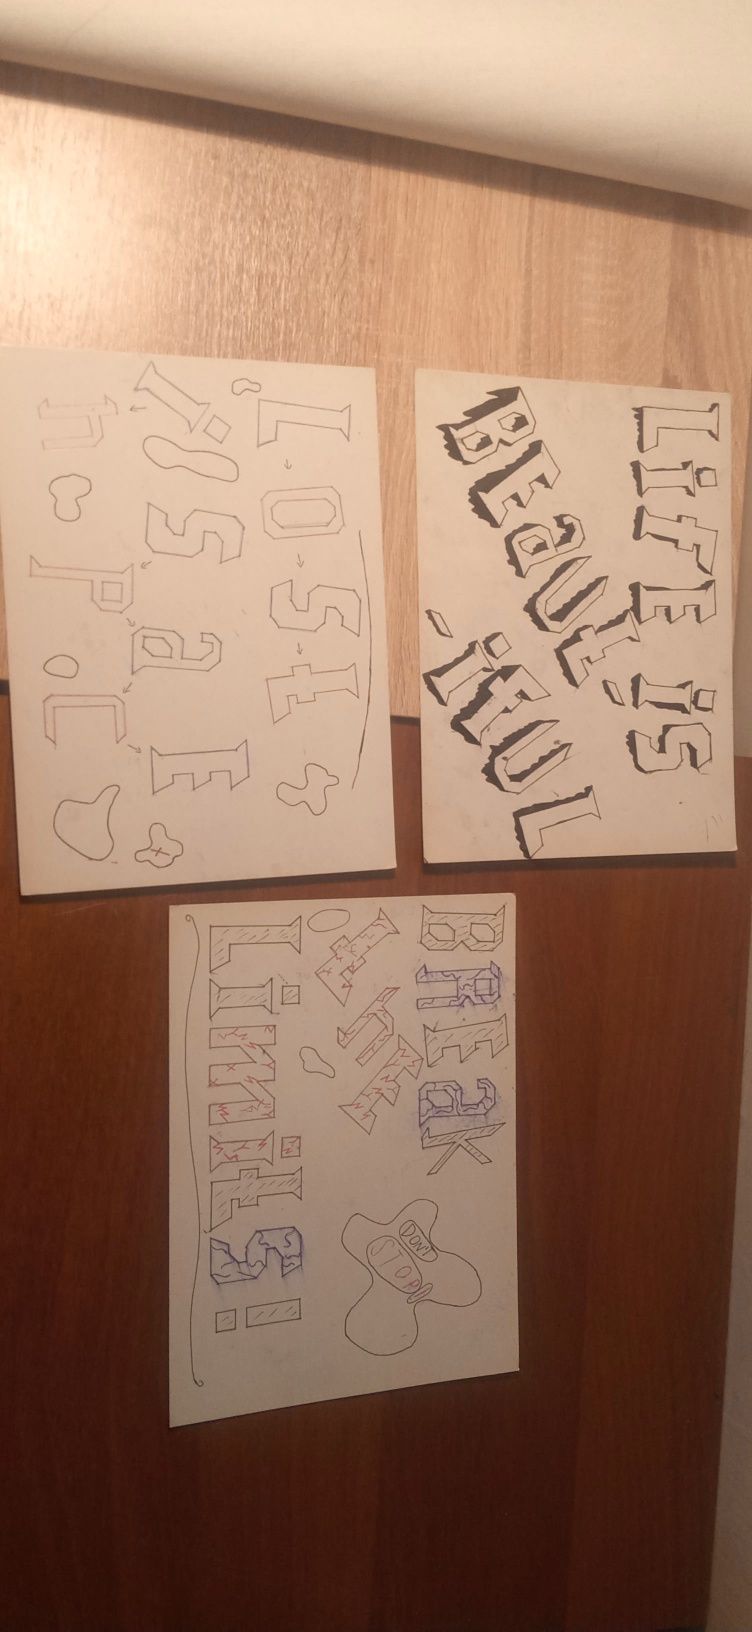 LifE iS
BEaUt-
-ifUL
LOSt
in SPaCE
BREak
thE
LimitS!
DON'T
STOP!